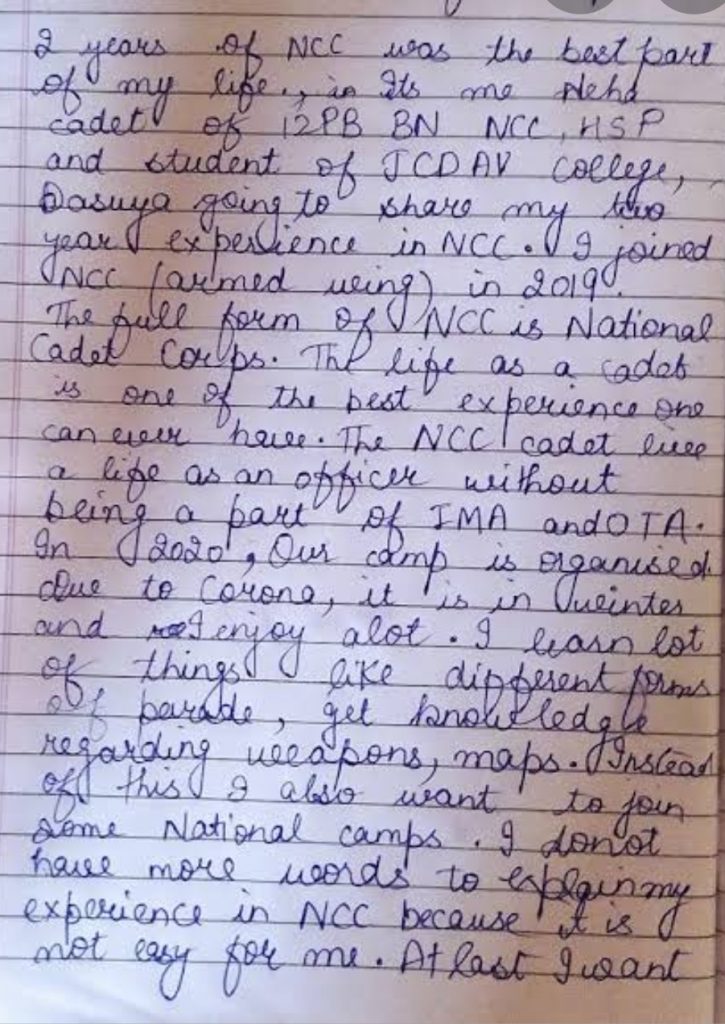 2 years of NCC was the best part
of my life., in Its me Neha
cadet of 12PB BN NCC, HSP
and student of JCDAV College,
Dasuya going to share my two
year experience in NCC. I joined
NCC (armed wing) in 2019.
The full form of NCC is National
Cadet Corps. The life as a cadet
is one of the best experience one
can ever have. The NCC cadet live
a life as an officer without
being a part of IMA and OTA.
In 2020, Our camp is organised.
Due to Corona, it is in winter
and I enjoy alot. I learn lot
of things like different forms
of parade, get knowledge
regarding weapons, maps. Instead
of this I also want to join
some National camps. I donot
have more words to explain my
experience in NCC because it is
not easy for me. At last I want